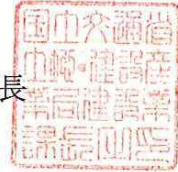 長
国土交通省
土地・建設産
業局建設業
課長之印